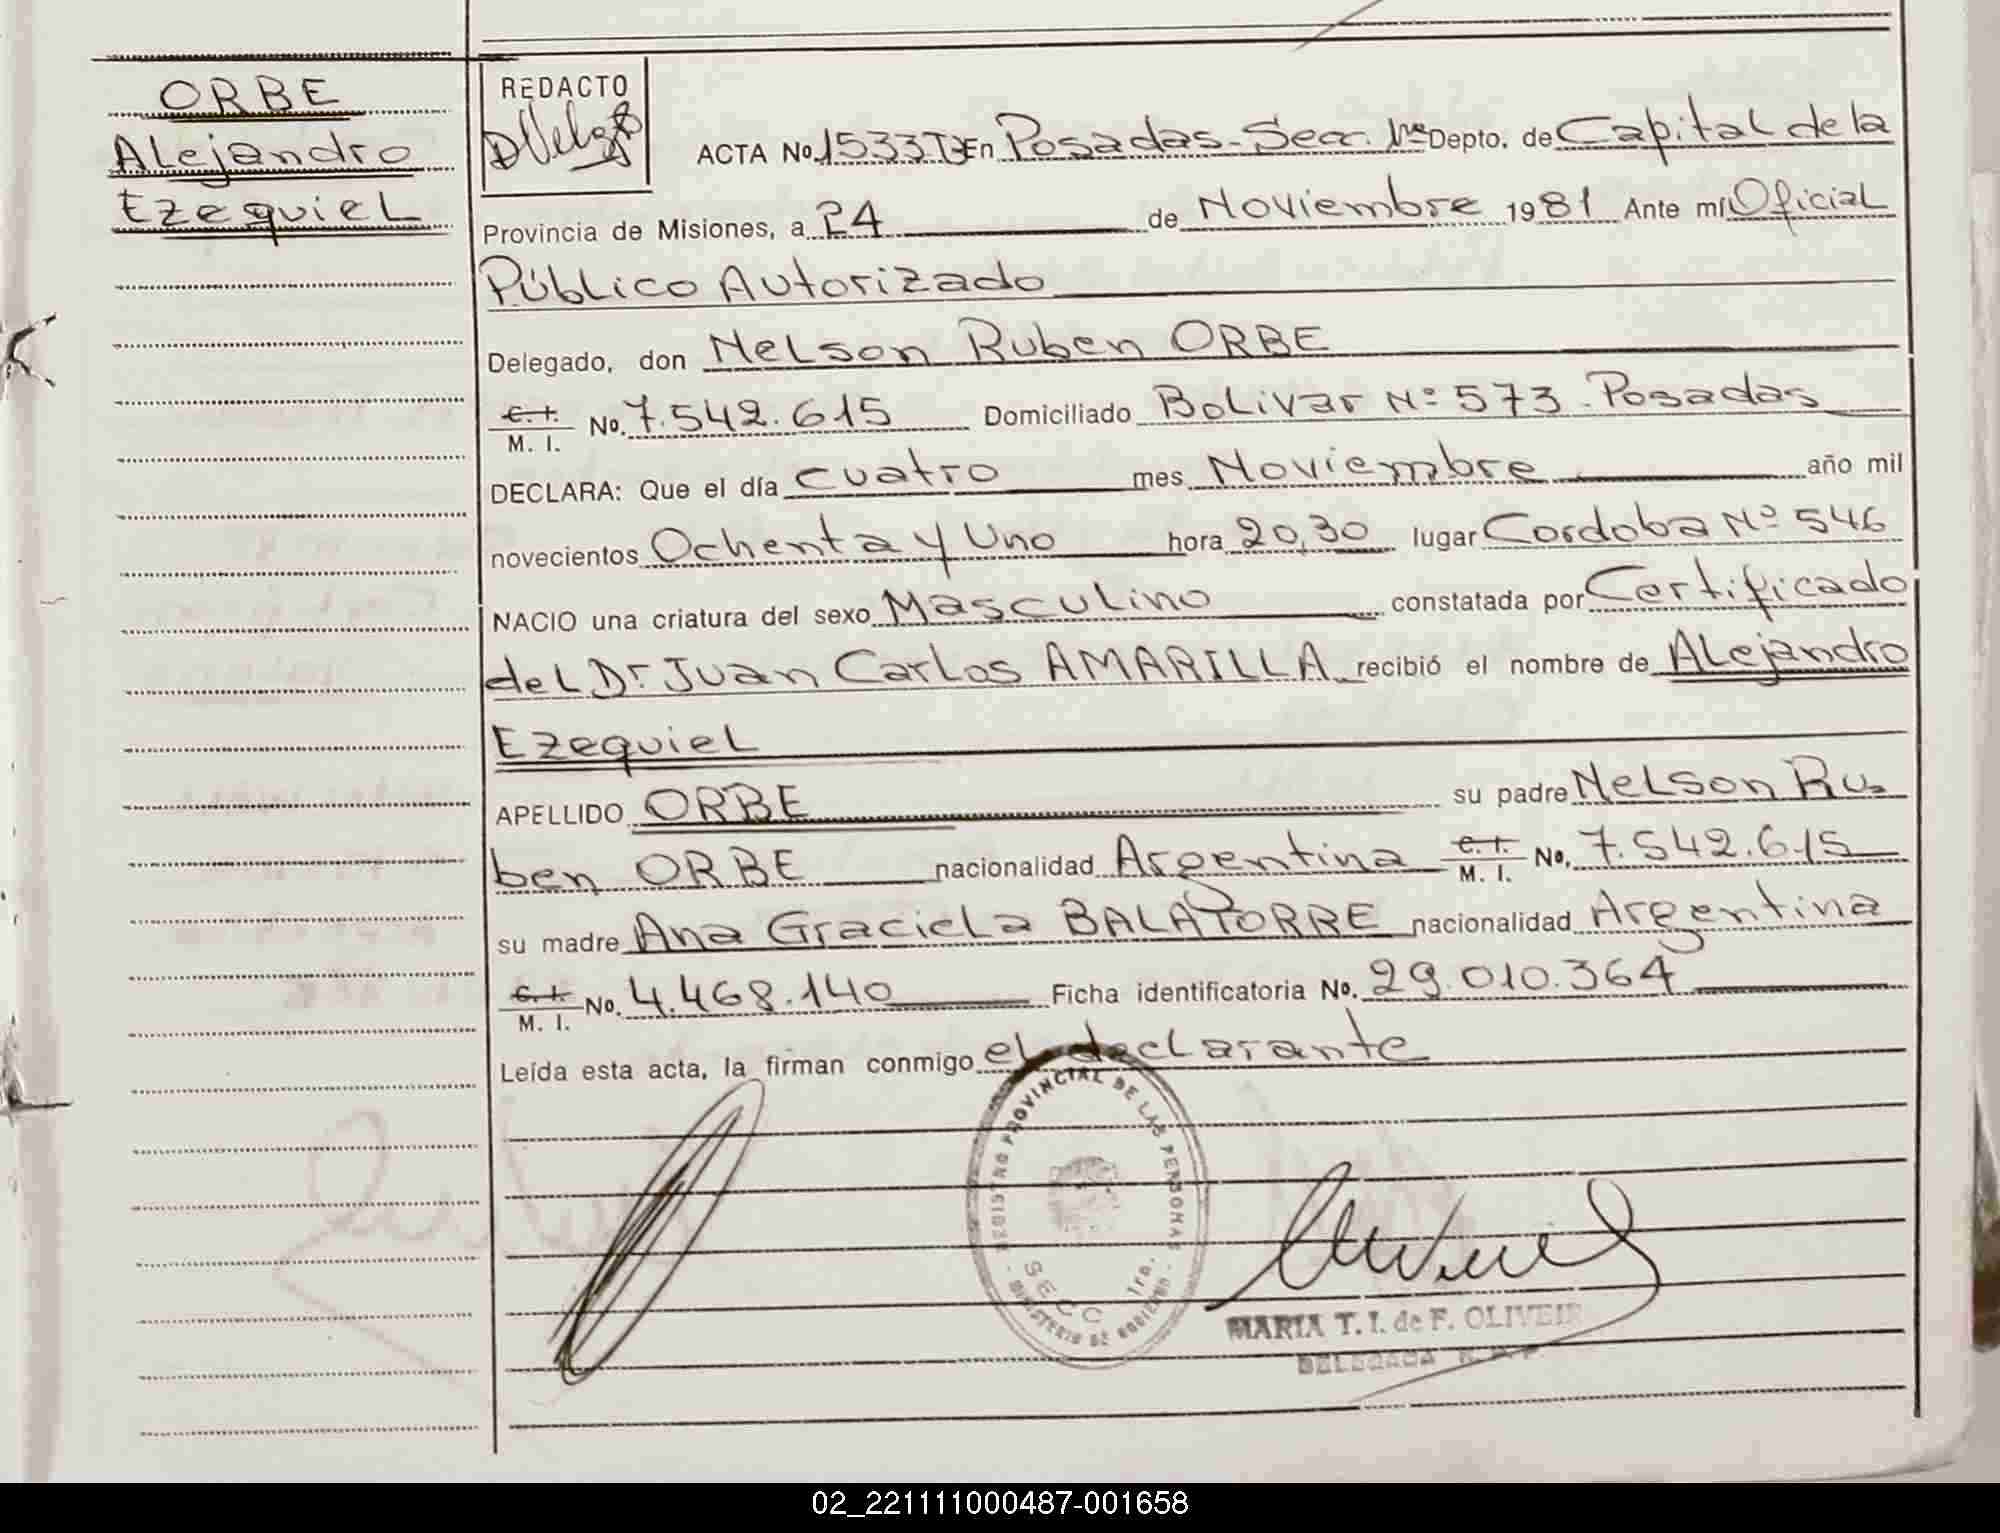 ORBE
Alejandro
Ezequiel
REDACTO
ACTA No. 1533 TB En Posadas - Secc. 1ra Depto. de Capital de la
Provincia de Misiones, a 24 de Noviembre 1981 Ante mí Oficial
Público Autorizado
Delegado, don Nelson Ruben ORBE
C. I.
M. I. No. 7.542.615 Domiciliado Bolivar Nº 573 - Posadas
DECLARA: Que el día cuatro mes Noviembre año mil
novecientos Ochenta y Uno hora 20,30 lugar Cordoba Nº 546
NACIO una criatura del sexo Masculino constatada por Certificado
del Dr. Juan Carlos AMARILLA recibió el nombre de Alejandro
Ezequiel
APELLIDO ORBE su padre Nelson Ru-
ben ORBE nacionalidad Argentina C. I. M. I. No. 7.542.615
su madre Ana Graciela BALATORRE nacionalidad Argentina
C. I.
M. I. No. 4.468.140 Ficha identificatoria No. 29.010.364
Leída esta acta, la firman conmigo el declarante
REGISTRO PROVINCIAL DE LAS PERSONAS
SECC 1ra.
MINISTERIO DE GOBIERNO
MARIA T. I. de F. OLIVEIR
DELEGADA R. P. P.
02_221111000487-001658